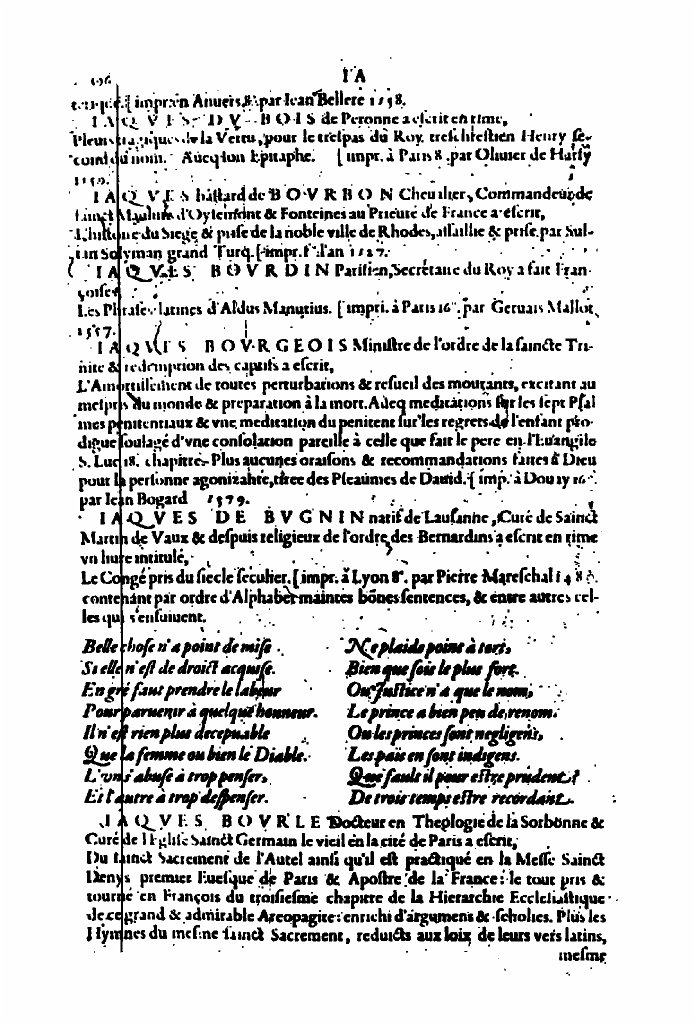 I A
[impr. en Anuers 8. par Iean Bellere 1558.
IAQVES DV BOIS de Peronne a escrit en rime,
Pleurs tragiques de la Vertu, pour le trespas du Roy treschrestien Henry se-
cond du nom. Auecq son Epitaphe. [impr. à Paris 8. par Oliuier de Harsy
1559.
IAQVES bastard de BOVRBON Cheualier, Commandeur de
sainct Mauluis d'Oysemont & Fonteines au Prieuré de France a escrit,
L'histoire du Siege & prise de la noble ville de Rhodes, assaillie & prise par Sul-
tan Solyman grand Turq. [impr. f°. l'an 1527.
IAQVES BOVRDIN Parisien, Secretaire du Roy a fait Fran-
çoises
Les Phrases latines d'Aldus Manutius. [impri. à Paris 16°. par Geruais Mallot,
1557.
IAQVES BOVRGEOIS Ministre de l'ordre de la saincte Tri-
nité & redemption des captifs a escrit,
L'Amortissement de toutes perturbations & resueil des mourants, excitant au
mespris du monde & preparation à la mort. Auecq meditations sur les sept Psal
mes penitentiaux & vne meditation du penitent sur les regrets de l'enfant pro-
digue soulagé d'vne consolation pareille à celle que fait le pere en l'Euangile
S. Luc 18. chapitre. Plus aucunes oraisons & recommandations faites à Dieu
pour la personne agonizante, tiree des Pseaumes de Dauid. [imp. à Douay 16°
par Iean Bogard 1579.
IAQVES DE BVGNIN natif de Lausanne, Curé de Sainct
Martin de Vaux & despuis religieux de l'ordre des Bernardins a escrit en rime
vn liure intitulé,
Le Congé pris du siecle seculier. [impr. à Lyon 8°. par Pierre Mareschal
contenant par ordre d'Alphabet maintes bõnes sentences, & entre autres cel-
les qui s'ensuiuent.
Belle chose n'a point de mise
Si elle n'est de droict acquise.
En gré faut prendre le labeur
Pour paruenir à quelque honneur.
Il n'est rien plus deceptiable
Que la femme ou bien le Diable.
L'vn s'abuse à trop penser,
Et l'autre à trop despenser.
Ne plaide point à tort,
Bien que sois le plus fort.
Ou Iustice n'a que le nom,
Le prince a bien peu de renom.
Ou les princes sont negligens,
Les païs en sont indigens.
Que faut il pour estre prudent?
De trois temps estre recordant.
IAQVES BOVRLE Docteur en Theologie de la Sorbonne &
Curé de l'Eglise Sainct Germain le vieil en la cité de Paris a escrit,
Du sainct Sacrement de l'Autel ainsi qu'il est practiqué en la Messe Sainct
Denys premier Euesque de Paris & Apostre de la France: le tout pris &
tourné en François du troisiesme chapitre de la Hierarchie Ecclesiastique
de ce grand & admirable Areopagite: enrichi d'argumens & scholies. Plus les
Hymnes du mesme sainct Sacrement, reduicts aux loix de leurs vers latins,
mesme